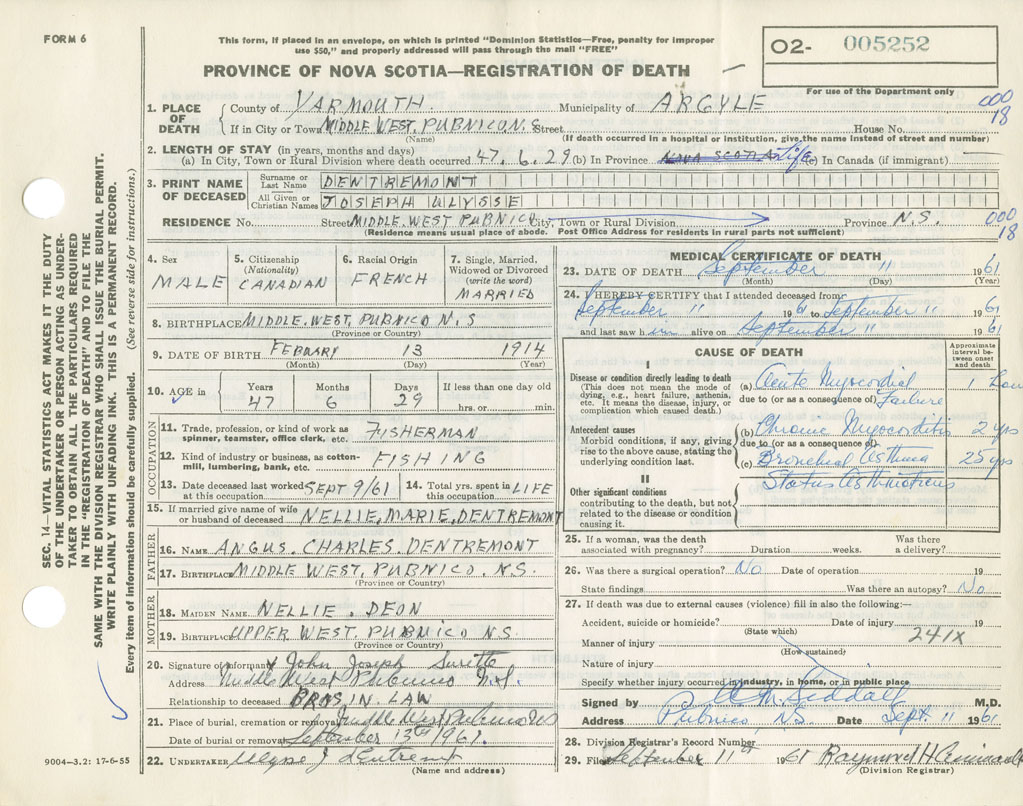 FORM 6
This form, if placed in an envelope, on which is printed "Dominion Statistics—Free, penalty for improper
use $50," and properly addressed will pass through the mail "FREE"
PROVINCE OF NOVA SCOTIA—REGISTRATION OF DEATH
O2- 005252
For use of the Department only
SEC. 14 — VITAL STATISTICS ACT MAKES IT THE DUTY
OF THE UNDERTAKER OR PERSON ACTING AS UNDER-
TAKER TO OBTAIN ALL THE PARTICULARS REQUIRED
IN THE "REGISTRATION OF DEATH" AND TO FILE THE
SAME WITH THE DIVISION REGISTRAR WHO SHALL ISSUE THE BURIAL PERMIT.
WRITE PLAINLY WITH UNFADING INK. THIS IS A PERMANENT RECORD.
Every item of Information should be carefully supplied. (See reverse side for instructions.)
1. PLACE OF DEATH County of YARMOUTH. Municipality of ARGYLE
000
18
If in City or Town MIDDLE.WEST.PUBNICO N.S Street House No.
(Name) (If death occurred in a hospital or institution, give the name instead of street and number)
2. LENGTH OF STAY (in years, months and days)
(a) In City, Town or Rural Division where death occurred 47. 6. 29 (b) In Province NOVA SCOTIA Life (c) In Canada (if immigrant)
3. PRINT NAME OF DECEASED
Surname or Last Name DENTREMONT
All Given or Christian Names JOSEPH ULYSSE
RESIDENCE No. Street MIDDLE.WEST PUBNICO City, Town or Rural Division Province N.S. 000
18
(Residence means usual place of abode. Post Office Address for residents in rural parts not sufficient)
4. Sex MALE
5. Citizenship (Nationality) CANADIAN
6. Racial Origin FRENCH
7. Single, Married, Widowed or Divorced (write the word) MARRIED
8. BIRTHPLACE MIDDLE.WEST.PUBNICO N.S
(Province or Country)
9. DATE OF BIRTH FEBUARY 13 1914
(Month) (Day) (Year)
10. AGE in Years Months Days If less than one day old
47 6 29 hrs. or min.
OCCUPATION
11. Trade, profession, or kind of work as spinner, teamster, office clerk, etc. FISHERMAN
12. Kind of industry or business, as cotton-mill, lumbering, bank, etc. FISHING
13. Date deceased last worked at this occupation SEPT 9/61
14. Total yrs. spent in this occupation LIFE
15. If married give name of wife or husband of deceased NELLIE.MARIE.DENTREMONT
FATHER
16. NAME ANGUS. CHARLES. DENTREMONT
17. BIRTHPLACE MIDDLE WEST. PUBNICO. N.S.
(Province or Country)
MOTHER
18. MAIDEN NAME NELLIE. DEON
19. BIRTHPLACE UPPER WEST. PUBNICO N.S
(Province or Country)
20. Signature of informant X John Joseph Surette
Address Middle West Pubnico N.S.
Relationship to deceased BROS IN LAW
21. Place of burial, cremation or removal Middle West Pubnico N.S
Date of burial or removal September 13th 1961.
22. UNDERTAKER
(Name and address)
9004—3.2: 17-6-55
MEDICAL CERTIFICATE OF DEATH
23. DATE OF DEATH September 11 1961
(Month) (Day) (Year)
24. I HEREBY CERTIFY that I attended deceased from
September 11 1961 to September 11 1961
and last saw him alive on September 11 1961
CAUSE OF DEATH
Approximate interval between onset and death
I
Disease or condition directly leading to death
(This does not mean the mode of dying, e.g., heart failure, asthenia, etc. It means the disease, injury, or complication which caused death.)
(a) Acute Myocordial 1 hour
due to (or as a consequence of) Failure
Antecedent causes
Morbid conditions, if any, giving rise to the above cause, stating the underlying condition last.
(b) Chronic Myocorditis 2 yrs
due to (or as a consequence of)
(c) Bronchial Asthma 25 yrs
II
Status Asthmaticus
Other significant conditions
contributing to the death, but not related to the disease or condition causing it.
25. If a woman, was the death associated with pregnancy? Duration weeks. Was there a delivery?
26. Was there a surgical operation? No Date of operation 19
State findings Was there an autopsy? No
27. If death was due to external causes (violence) fill in also the following:—
Accident, suicide or homicide? Date of injury 19
(State which) 241X
Manner of injury
(How sustained)
Nature of injury
Specify whether injury occurred in industry, in home, or in public place
Signed by M.D.
Address Pubnico N.S. Date Sept. 11 1961
28. Division Registrar's Record Number
29. Filed September 11th 1961 Raymond H
(Division Registrar)